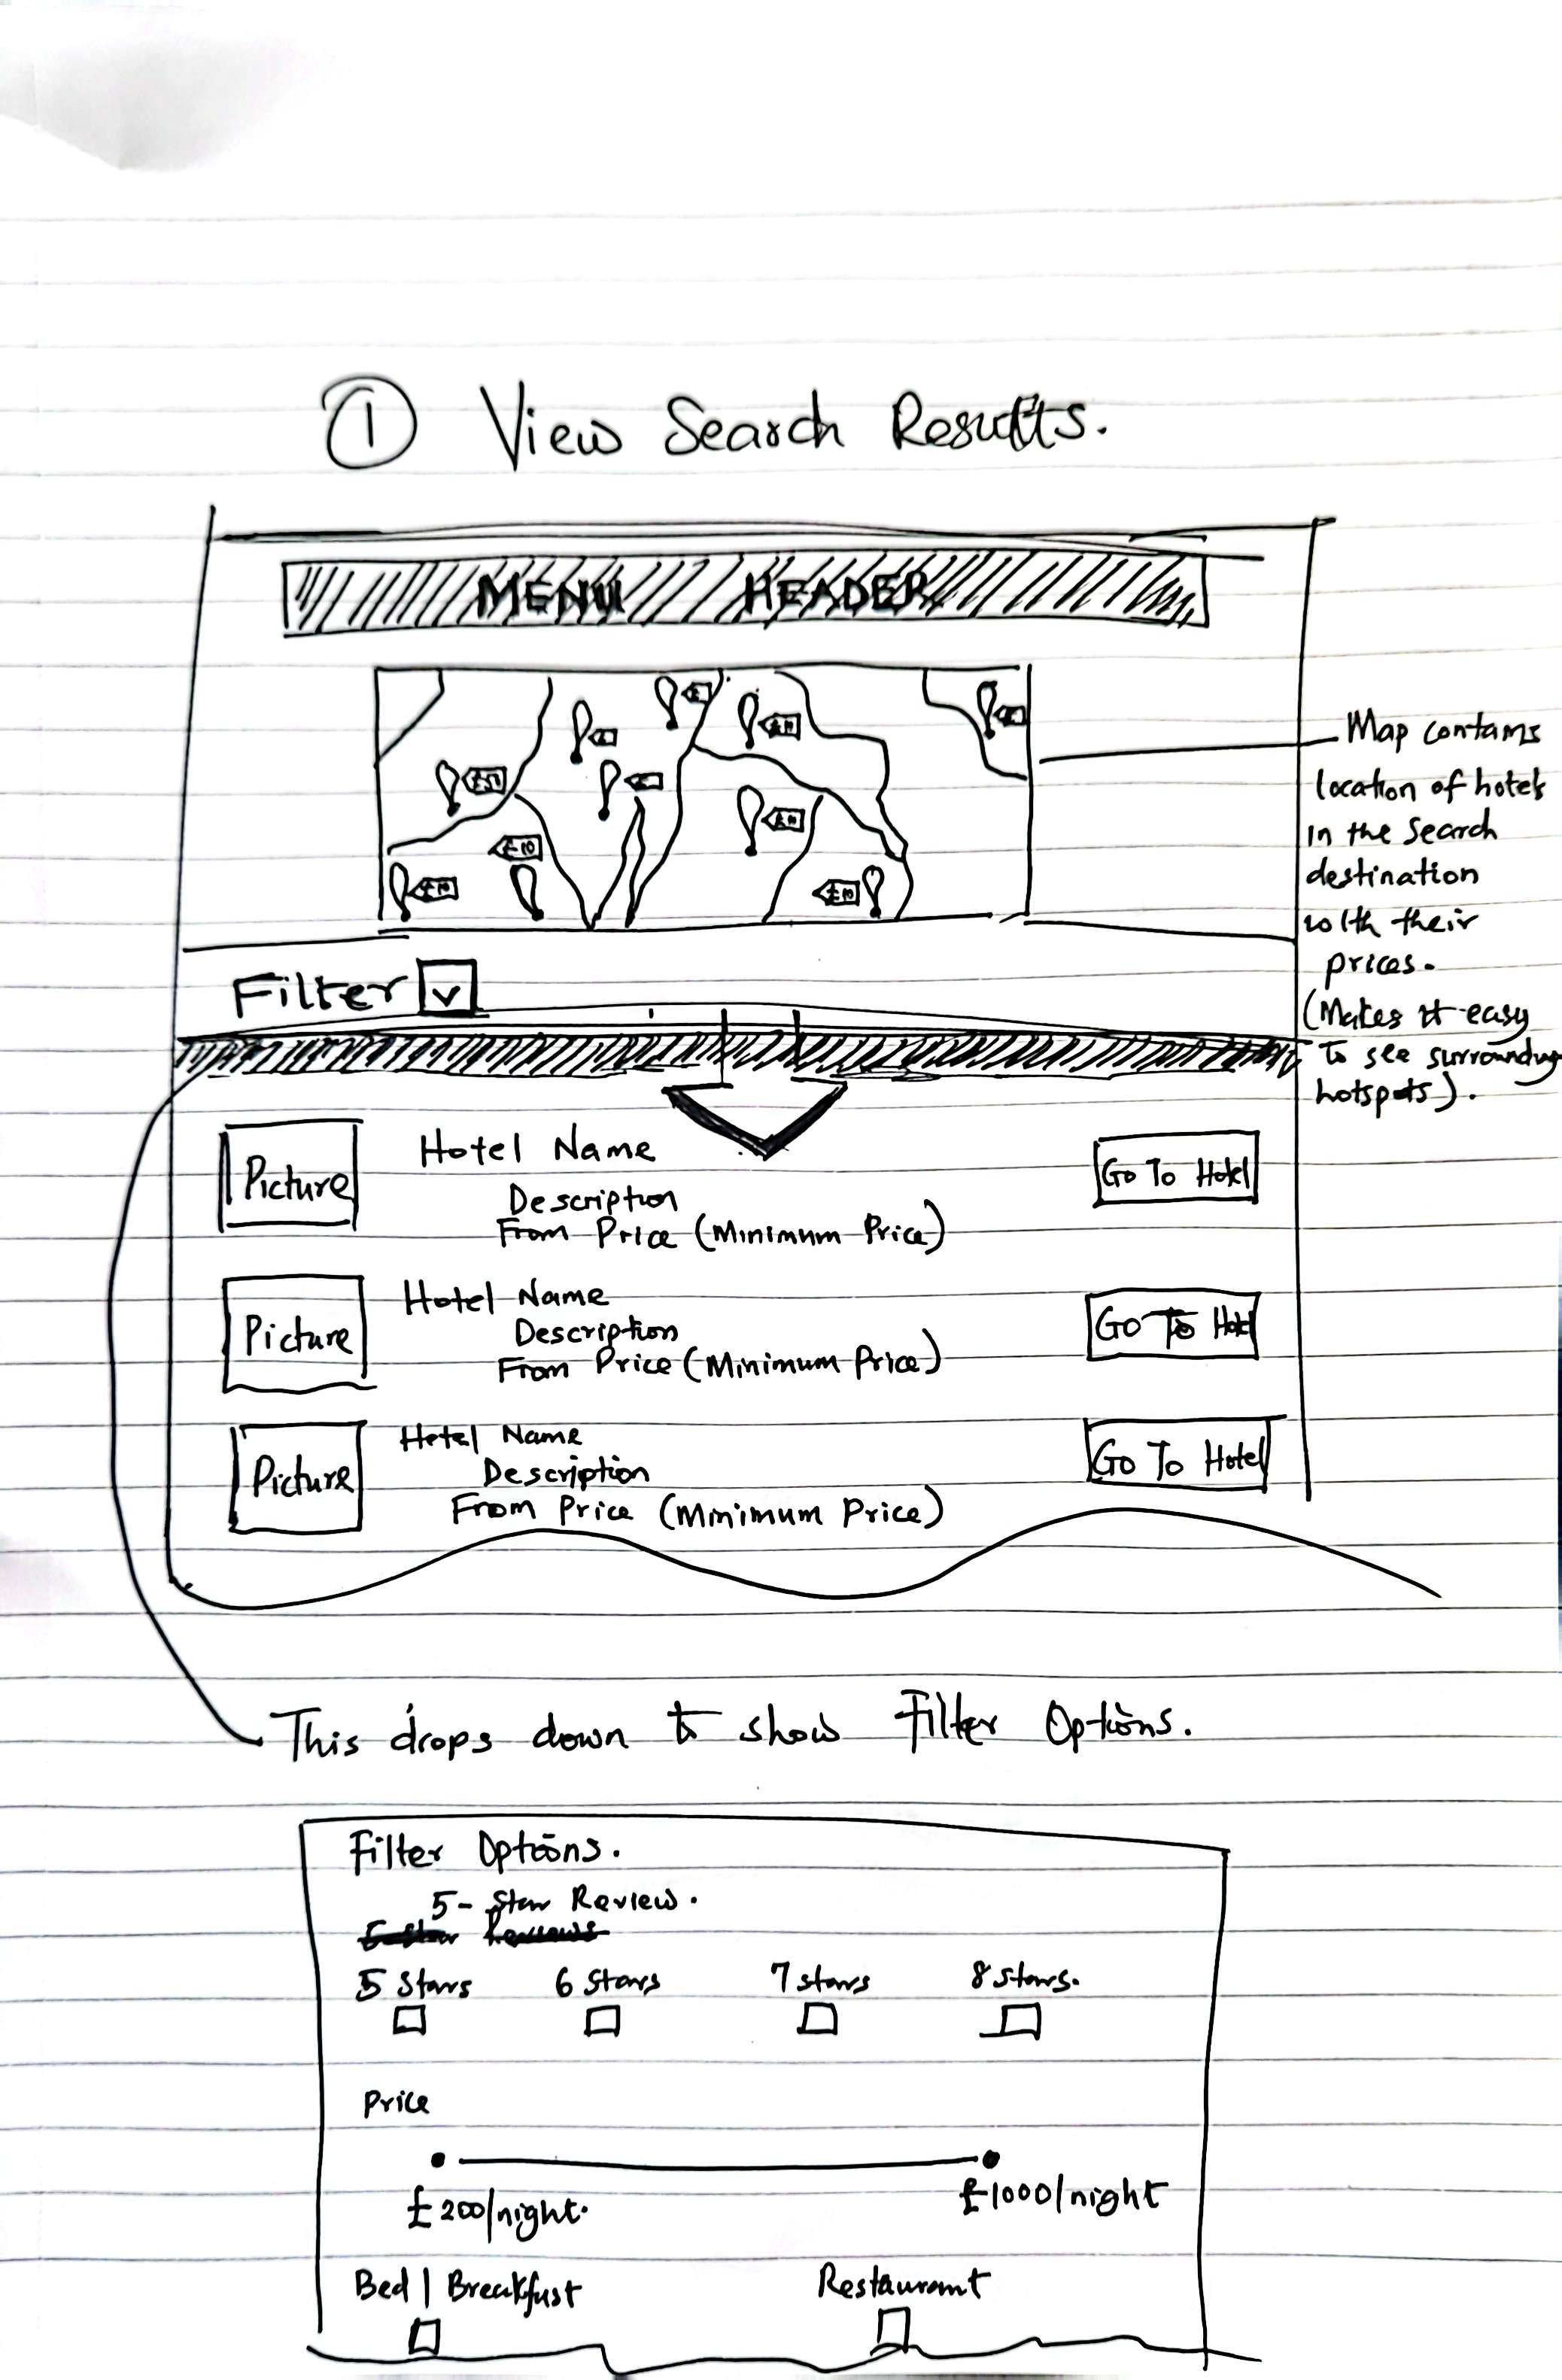 ① View Search Results.
MENU HEADER
£
£
£10
£
£
£50
£
£10
£10
£10
£10
Map contains
location of hotels
in the Search
destination
with their
prices.
(Makes it easy
To see surrounding
hotspots).
Filter
Picture
Hotel Name
Description
From Price (Minimum Price)
Go To Hotel
Picture
Hotel Name
Description
From Price (Minimum Price)
Go To Hotel
Picture
Hotel Name
Description
From Price (Minimum Price)
Go To Hotel
This drops down to show Filter Options.
Filter Options.
5- Star Review.
5 Star Reviews
5 Stars 6 Stars 7 stars 8 stars.
Price
£200/night. £1000/night
Bed | Breakfast Restaurant